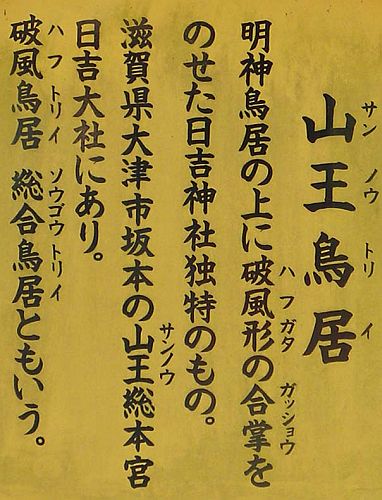 山王鳥居
サンノウトリイ
明神鳥居の上に破風形の合掌を
ハフガタ ガッショウ
のせた日吉神社独特のもの。
滋賀県大津市坂本の山王総本宮
サンノウ
日吉大社にあり。
破風鳥居 総合鳥居ともいう。
ハフトリイ ソウゴウトリイ